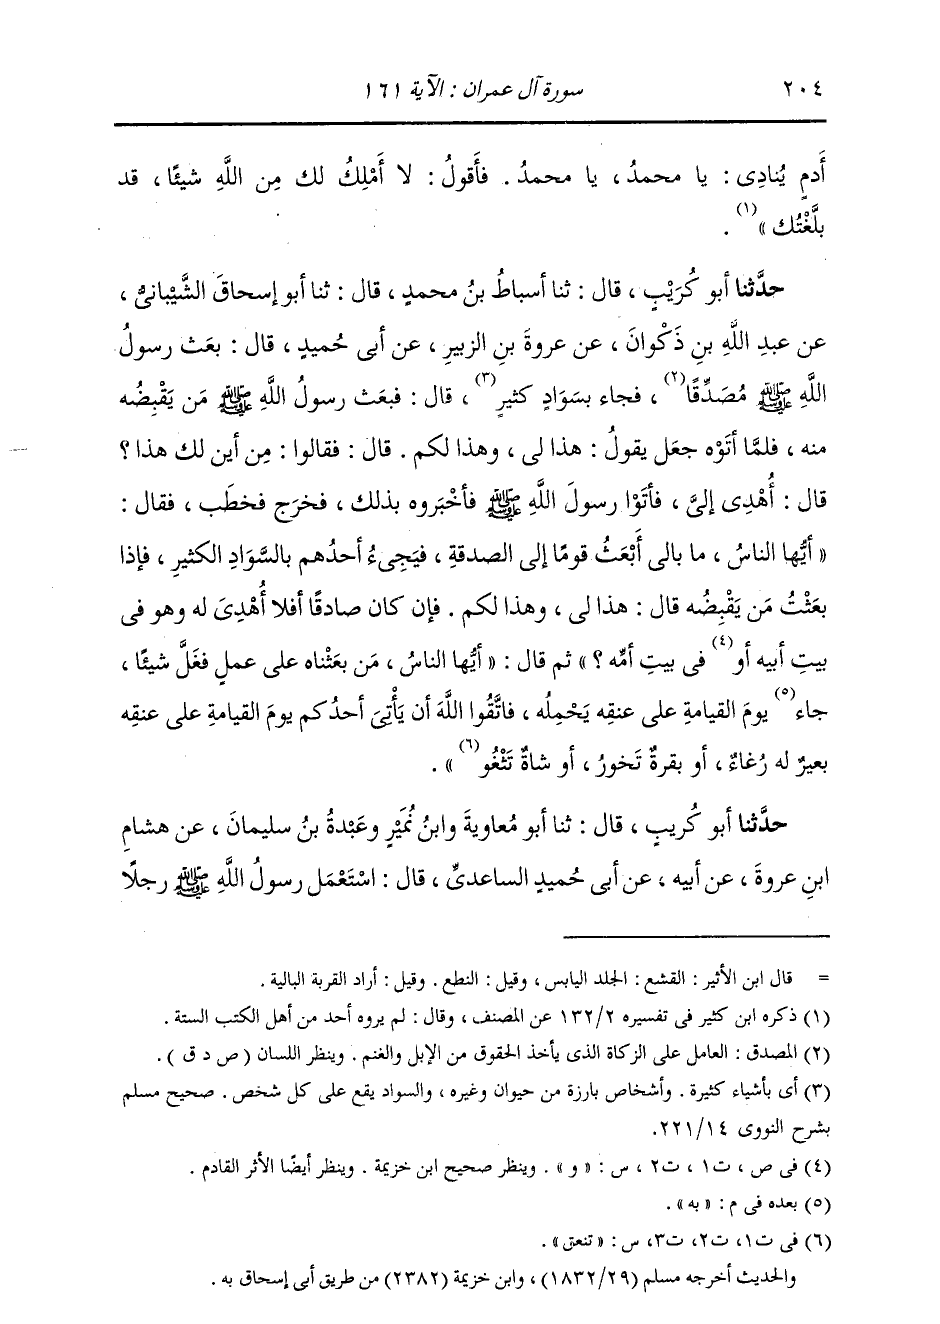 ٢٠٤ سورة آل عمران : الآية ١٦١
أَدمٍ يُنادِى : يا محمدُ ، يا محمدُ . فأَقولُ : لا أَمْلِكُ لك مِن اللَّهِ شيئًا ، قد
بلَّغْتُك »(١) .
حدَّثنا أبو كُرَيْبٍ ، قال : ثنا أسباطُ بنُ محمدٍ ، قال : ثنا أبو إسحاقَ الشَّيْبانىُّ ،
عن عبدِ اللَّهِ بنِ ذَكْوانَ ، عن عروةَ بنِ الزبيرِ ، عن أبى حُميدٍ ، قال : بعَث رسولُ
اللَّهِ ﷺ مُصَدِّقًا(٢) ، فجاء بسَوَادٍ كثيرٍ(٣) ، قال : فبعَث رسولُ اللَّهِ ﷺ مَن يَقْبِضُه
منه ، فلمَّا أتَوْه جعَل يقولُ : هذا لى ، وهذا لكم . قال : فقالوا : مِن أين لك هذا ؟
قال : أُهْدِى إلىَّ ، فأتَوْا رسولَ اللَّهِ ﷺ فأخْبَروه بذلك ، فخرَج فخطَب ، فقال :
« أيُّها الناسُ ، ما بالى أَبْعَثُ قومًا إلى الصدقةِ ، فيَجِىءُ أحدُهم بالسَّوَادِ الكثيرِ ، فإذا
بعَثْتُ مَن يَقْبِضُه قال : هذا لى ، وهذا لكم . فإن كان صادقًا أفلا أُهْدِىَ له وهو فى
بيتِ أبيه أو(٤) فى بيتِ أمِّه ؟ » ثم قال : « أيُّها الناسُ ، مَن بعَثْناه على عملٍ فغَلَّ شيئًا ،
جاء(٥) يومَ القيامةِ على عنقِه يَحْمِلُه ، فاتَّقُوا اللَّهَ أن يَأْتِىَ أحدُكم يومَ القيامةِ على عنقِه
بعيرٌ له رُغاءٌ ، أو بقرةٌ تَخورُ ، أو شاةٌ تَثْغُو(٦) » .
حدَّثنا أبو كُريبٍ ، قال : ثنا أبو مُعاويةَ وابنُ نُمَيْرٍ وعَبْدةُ بنُ سليمانَ ، عن هشامِ
ابنِ عروةَ ، عن أبيه ، عن أبى حُميدٍ الساعدىِّ ، قال : اسْتَعْمَل رسولُ اللَّهِ ﷺ رجلًا
= قال ابن الأثير : القشع : الجلد اليابس ، وقيل : النطع . وقيل : أراد القربة البالية .
(١) ذكره ابن كثير فى تفسيره ١٣٢/٢ عن المصنف ، وقال : لم يروه أحد من أهل الكتب الستة .
(٢) المصدق : العامل على الزكاة الذى يأخذ الحقوق من الإبل والغنم . وينظر اللسان ( ص د ق ) .
(٣) أى بأشياء كثيرة . وأشخاص بارزة من حيوان وغيره ، والسواد يقع على كل شخص . صحيح مسلم
بشرح النووى ٢٢١/١٤.
(٤) فى ص ، ت١ ، ت٢ ، س : « و » . وينظر صحيح ابن خزيمة . وينظر أيضًا الأثر القادم .
(٥) بعده فى م : « به » .
(٦) فى ت١، ت٢، ت٣، س : « تنعق» .
والحديث أخرجه مسلم (١٨٣٢/٢٩) ، وابن خزيمة (٢٣٨٢) من طريق أبى إسحاق به .